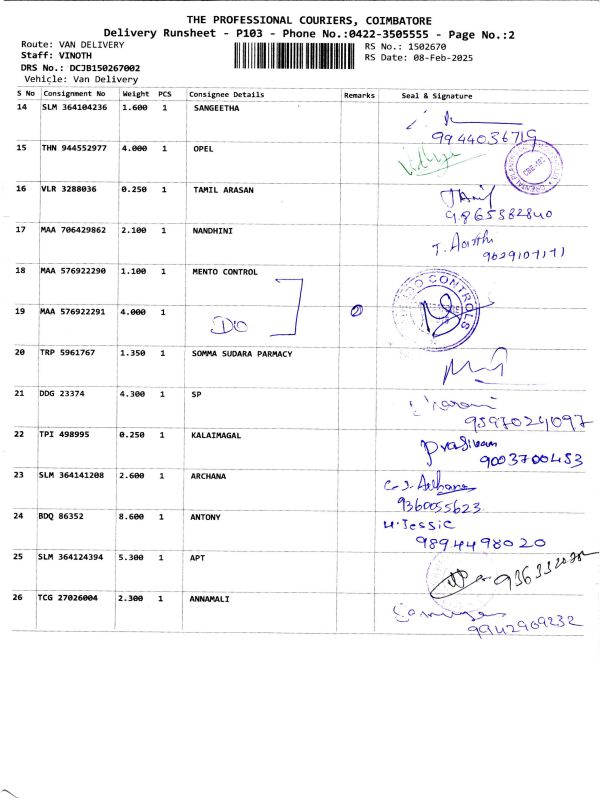 THE PROFESSIONAL COURIERS, COIMBATORE
Delivery Runsheet - P103 - Phone No.:0422-3505555 - Page No.:2
Route: VAN DELIVERY RS No.: 1502670
Staff: VINOTH RS Date: 08-Feb-2025
DRS No.: DCJB150267002
Vehicle: Van Delivery
S No Consignment No Weight PCS Consignee Details Remarks Seal & Signature
14 SLM 364104236 1.600 1 SANGEETHA
9944036719
15 THN 944552977 4.000 1 OPEL
16 VLR 3288036 0.250 1 TAMIL ARASAN
9865382840
17 MAA 706429862 2.100 1 NANDHINI T. Aarthi
9629107171
18 MAA 576922290 1.100 1 MENTO CONTROL
19 MAA 576922291 4.000 1 DO 2 CONTROLS
20 TRP 5961767 1.350 1 SOMMA SUDARA PARMACY
21 DDG 23374 4.300 1 SP
9597024097
22 TPI 498995 0.250 1 KALAIMAGAL
9003700453
23 SLM 364141208 2.600 1 ARCHANA
9360055623
24 BDQ 86352 8.600 1 ANTONY U.Jessic
9894498020
25 SLM 364124394 5.300 1 APT
26 TCG 27026004 2.300 1 ANNAMALI
9942969232